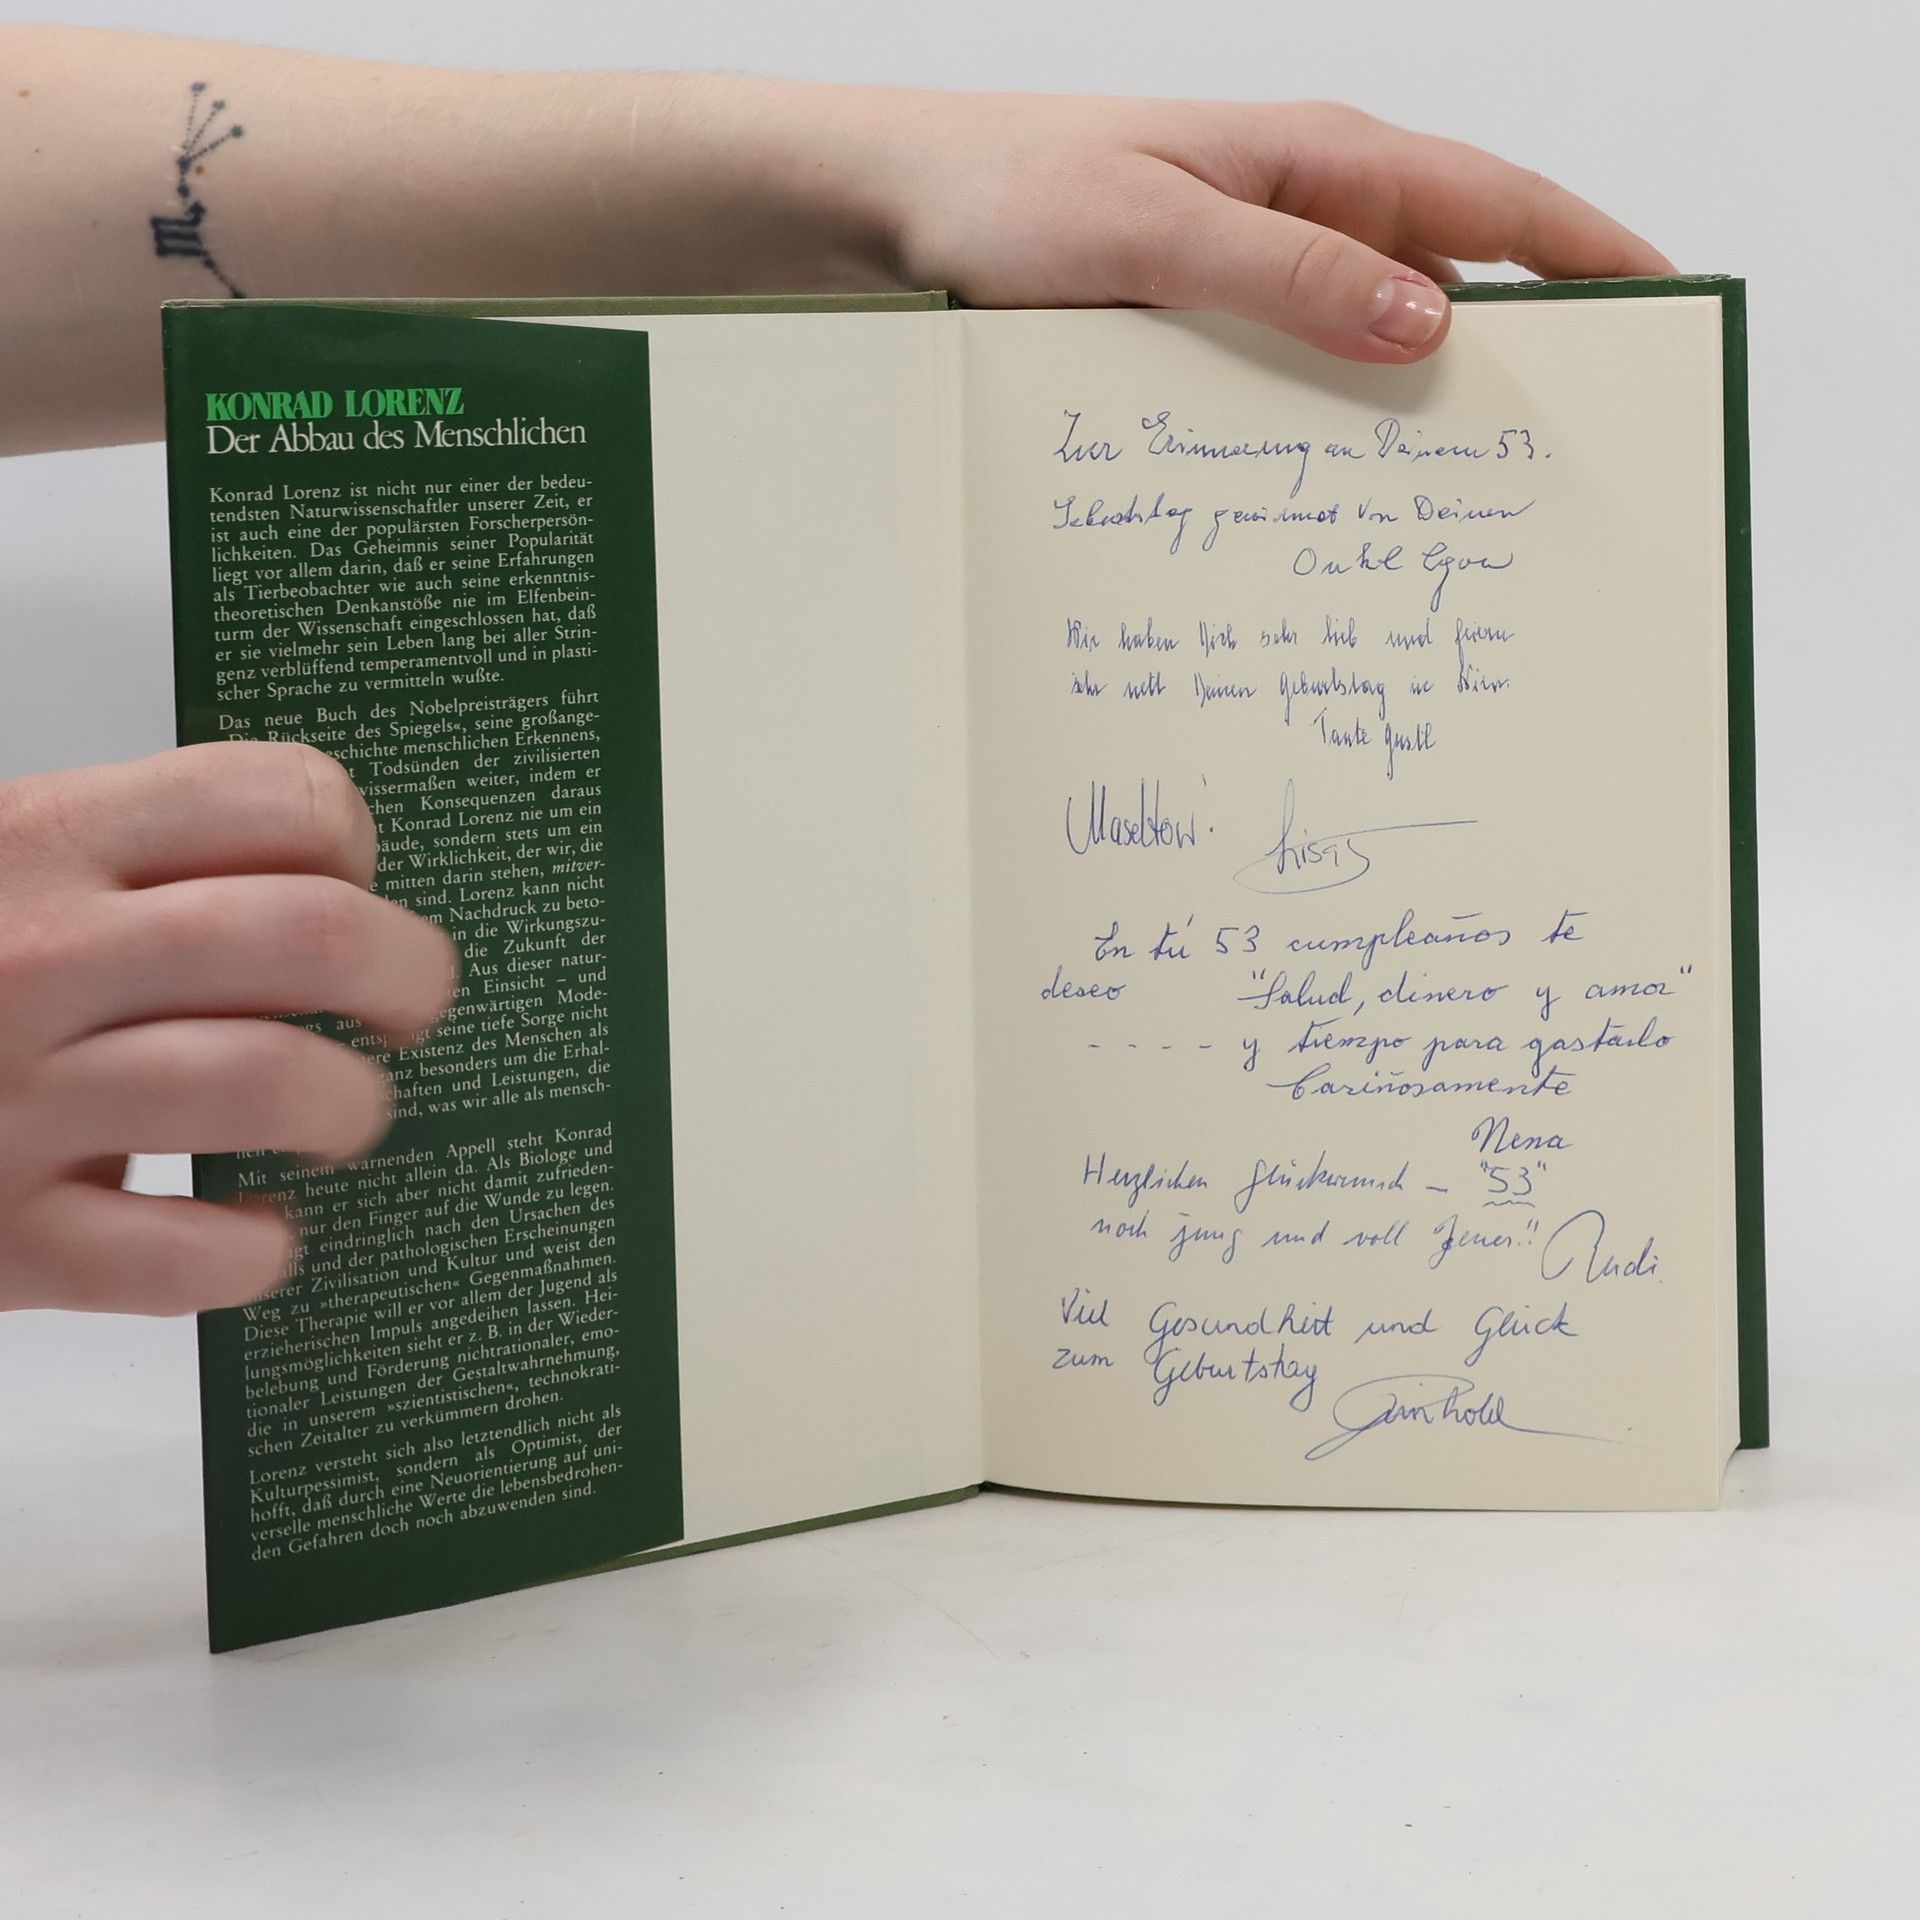 KONRAD LORENZ
Der Abbau des Menschlichen
Konrad Lorenz ist nicht nur einer der bedeu-
tendsten Naturwissenschaftler unserer Zeit, er
ist auch eine der populärsten Forscherpersön-
lichkeiten. Das Geheimnis seiner Popularität
liegt vor allem darin, daß er seine Erfahrungen
als Tierbeobachter wie auch seine erkenntnis-
theoretischen Denkanstöße nie im Elfenbein-
turm der Wissenschaft eingeschlossen hat, daß
er sie vielmehr sein Leben lang bei aller Strin-
genz verblüffend temperamentvoll und in plasti-
scher Sprache zu vermitteln wußte.
Das neue Buch des Nobelpreisträgers führt
»Die Rückseite des Spiegels«, seine großange-
eschichte menschlichen Erkennens,
t Todsünden der zivilisierten
wissermaßen weiter, indem er
chen Konsequenzen daraus
t Konrad Lorenz nie um ein
bäude, sondern stets um ein
der Wirklichkeit, der wir, die
e mitten darin stehen, mitver-
en sind. Lorenz kann nicht
em Nachdruck zu beto-
in die Wirkungszu-
die Zukunft der
Aus dieser natur-
en Einsicht – und
egenwärtigen Mode-
gs aus – entspringt seine tiefe Sorge nicht
ere Existenz des Menschen als
ganz besonders um die Erhal-
chaften und Leistungen, die
sind, was wir alle als mensch-
Mit seinem warnenden Appell steht Konrad
Lorenz heute nicht allein da. Als Biologe und
kann er sich aber nicht damit zufrieden-
nur den Finger auf die Wunde zu legen.
gt eindringlich nach den Ursachen des
alls und der pathologischen Erscheinungen
unserer Zivilisation und Kultur und weist den
Weg zu »therapeutischen« Gegenmaßnahmen.
Diese Therapie will er vor allem der Jugend als
erzieherischen Impuls angedeihen lassen. Hei-
lungsmöglichkeiten sieht er z. B. in der Wieder-
belebung und Förderung nichtrationaler, emo-
tionaler Leistungen der Gestaltwahrnehmung,
die in unserem »szientistischen«, technokrati-
schen Zeitalter zu verkümmern drohen.
Lorenz versteht sich also letztendlich nicht als
Kulturpessimist, sondern als Optimist, der
hofft, daß durch eine Neuorientierung auf uni-
verselle menschliche Werte die lebensbedrohen-
den Gefahren doch noch abzuwenden sind.
Zur Erinnerung an Deinem 53.
Geburtstag gewidmet von Deinen
Onkel Egon
Wir haben Dich sehr lieb und feiern
sehr nett Deinen Geburtstag in Wien.
Tante Gustl
Maseltow!
En tú 53 cumpleaños te
deseo "Salud, dinero y amor"
- - - - y tiempo para gastarlo
Cariñosamente
Nena
Herzlichen Glückwunsch – "53"
noch jung und voll Feuer!!
Rudi
Viel Gesundheit und Glück
zum Geburtstag